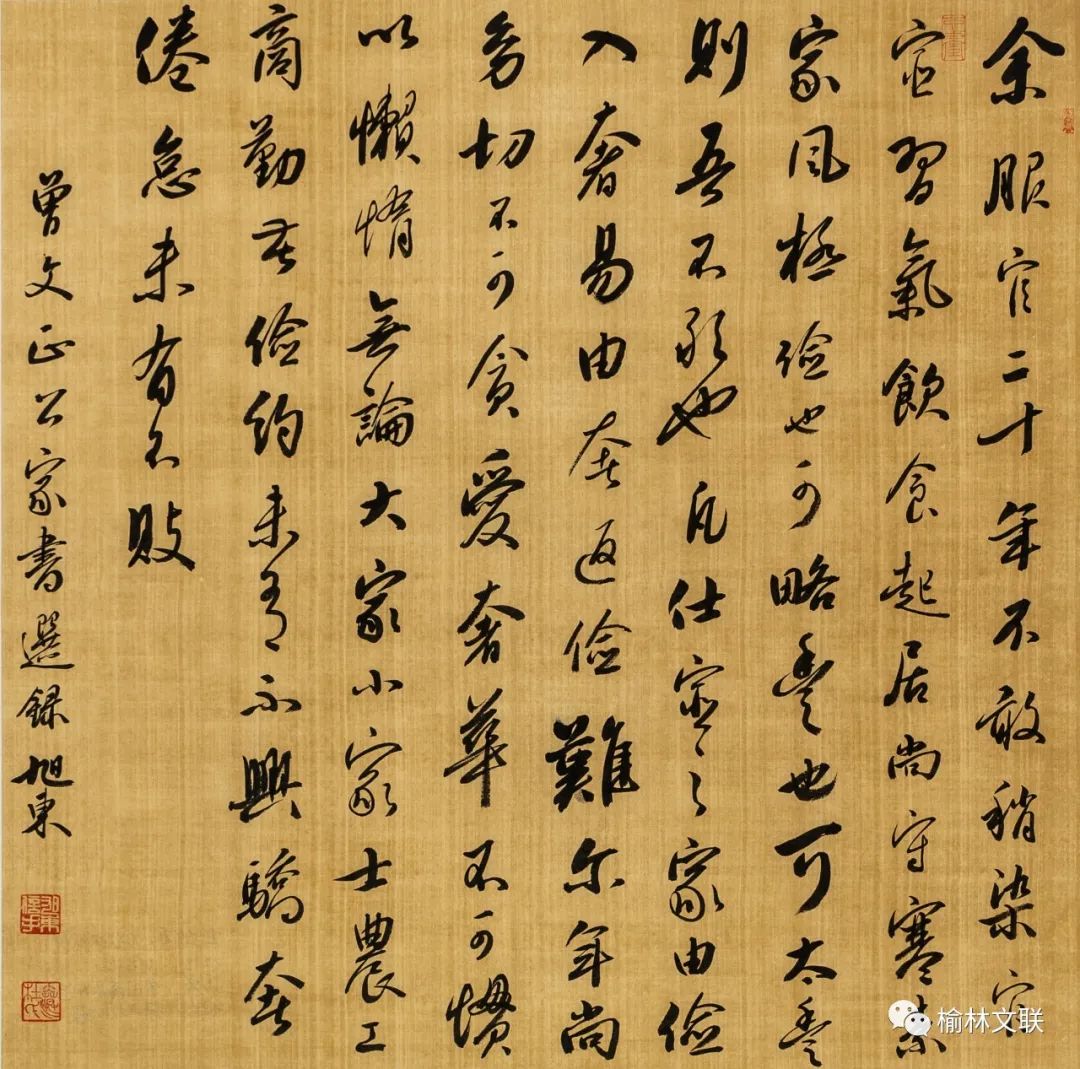 余服官二十年不敢稍染官
宦習氣飲食起居尚守寒素
家風極儉也可略豐也可太豐
則吾不敢也凡仕宦之家由儉
入奢易由奢返儉難尔年尚
幼切不可貪愛奢華不可慣
以懶惰無論大家小家士農工
商勤苦儉約未有不興驕奢
倦怠未有不敗
曾文正公家書選録旭東
榆林文联